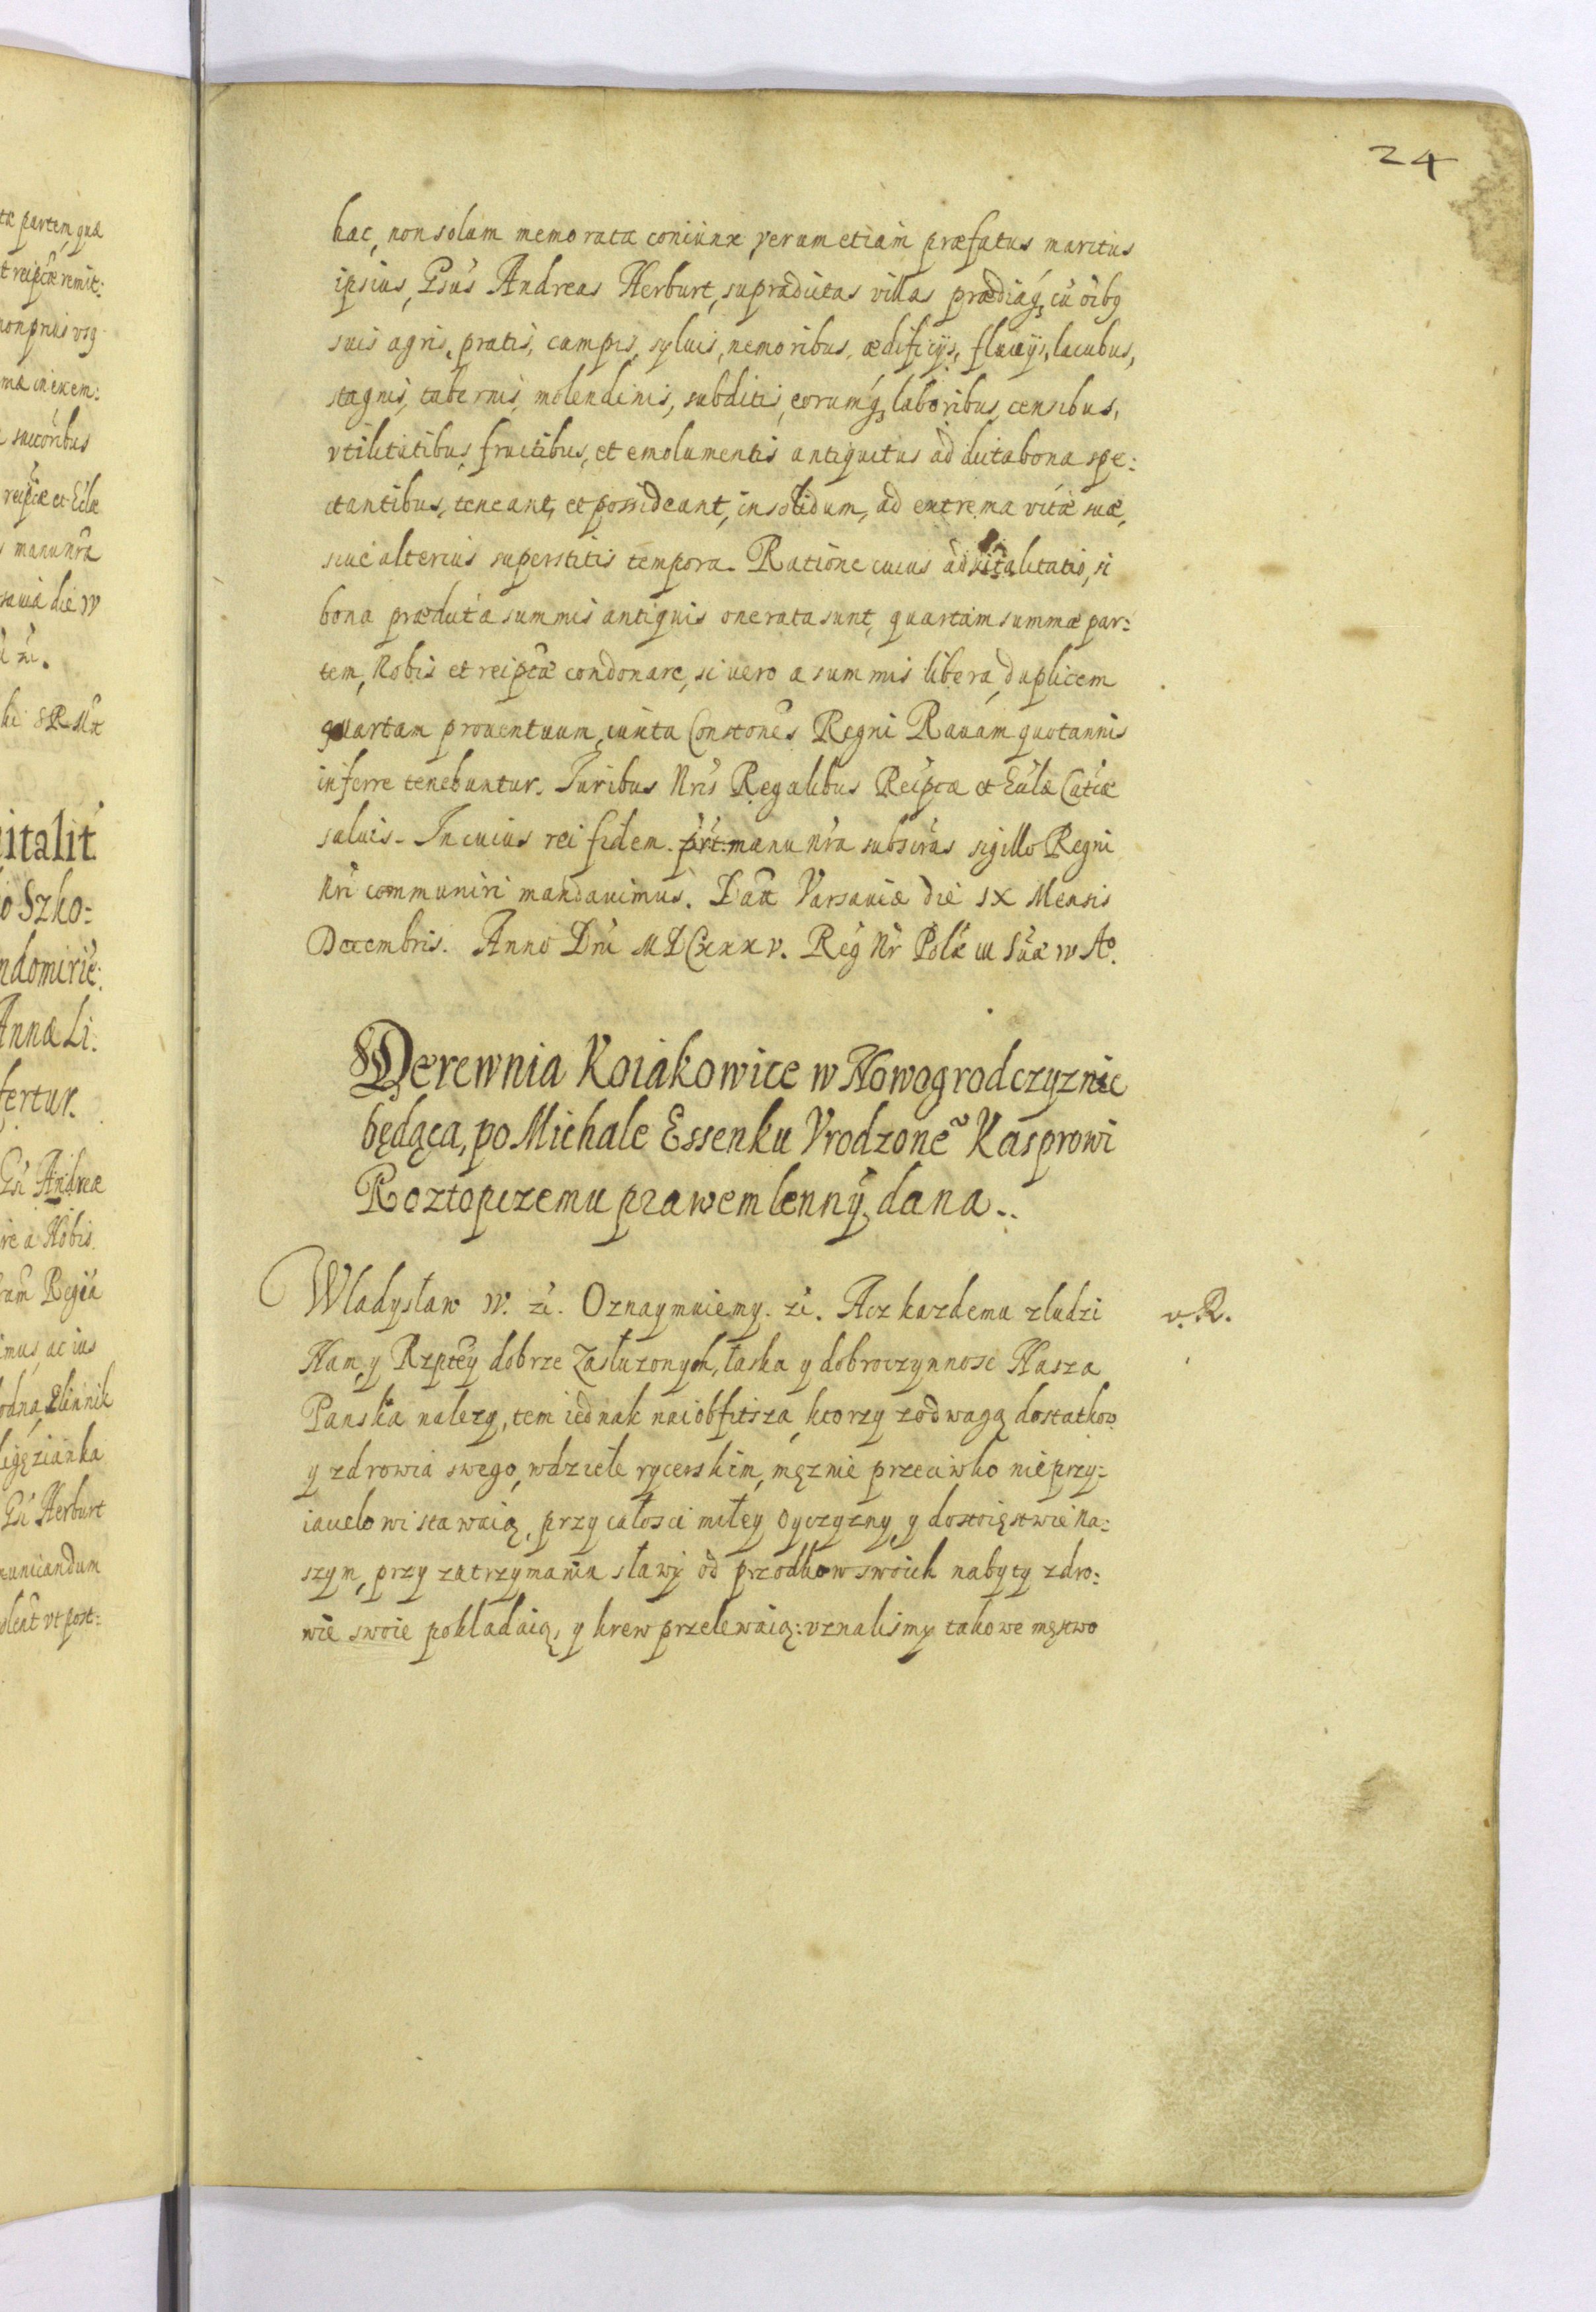 24
hac, non solum memorata coniunx verum etiam præfatus maritus
ipsius, Gsús Andreas Herburt, supradictas villas prædiaq3 cũ oĩbq
suis agris, pratis, campis, syluis, nemoribus, ædificijs, fluuijs, lacubus,
stagnis, tabernis, molendinis, subditis, eorumq3 laboribus, censibus,
vtilitatibus, fructibus, et emolumentis antiquitus ad dicta bona spe:
ctantibus, teneant, et possideant, in solidum, ad extrema vitæ suæ,
siue alterius superstitis tempora. Ratione cuius aduitalitatis, si
bona prædicta summis antiquis onerata sunt, quartam summæ par:
tem, Nobis et reiptæ condonare, si uero a summis libera, duplicem
quartam prouentuum, iuxta Constones Regni Rauam quotannis
inferre tenebuntur. Iuribus Nris Regalibus Reipca et Eccla Catcæ
saluis. In cuius rei fidem. prt. manu nra subscras sigillo Regni
Nri communiri mandauimus. Datt Varsauiæ die IX Mensis
Decembris. Anno Dni MDCxxxv. Reg Nr Polæ III Suæ IV Aº.
Derewnia Koiakowice w Nowogrodczyznie
będąca, po Michale Essenku Vrodzonẽ Kasprowi
Roztopczemu prawem lenny. dana..
Wladysław IV. zc. Oznaymuiemy. zc. Acz kazdemu zludzi
v. R.
Nam, y Rzptey dobrze Zasłuzonych, łaska y dobroczynnosc Nasza
Panska nalezy, tem iednak naiobfitsza, ktorzy zodwagą dostatkow
y zdrowia swego, wdziele rycerskim, męznie przeciwko nieprzy:
iacielowi stawaią, przy całosci miłey Oyczyzny, y dostoięstwie na:
szym, przy zatrzymaniu sławy od przodkow swoich nabyty zdro:
wie swoie pokladaią, y krew przelewaią: vznalismy takowe męstwo